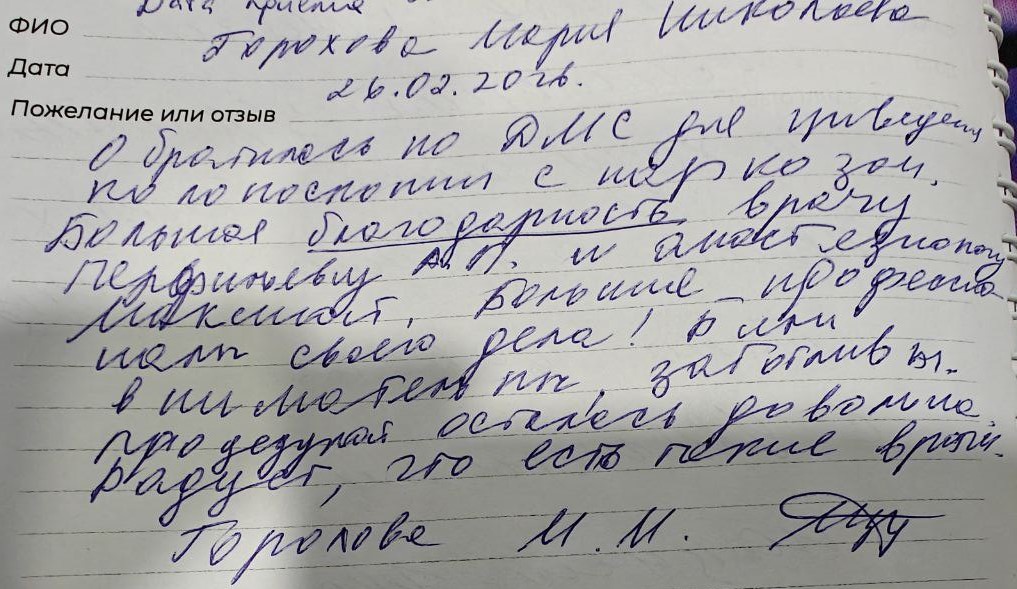 Дата приема
ФИО Горохова Мария Николаевна
Дата 26.02.2026.
Пожелание или отзыв
Обратилась по ДМС для
колопоскопии с наркозом.
Большая благодарность врачу
А.П. и анастезиологу
Большие професио
налы своего дела! Были
внимательны, заботливы.
процедурой осталась довольна
Радует, что есть такие врачи.
Горохова М.Н.